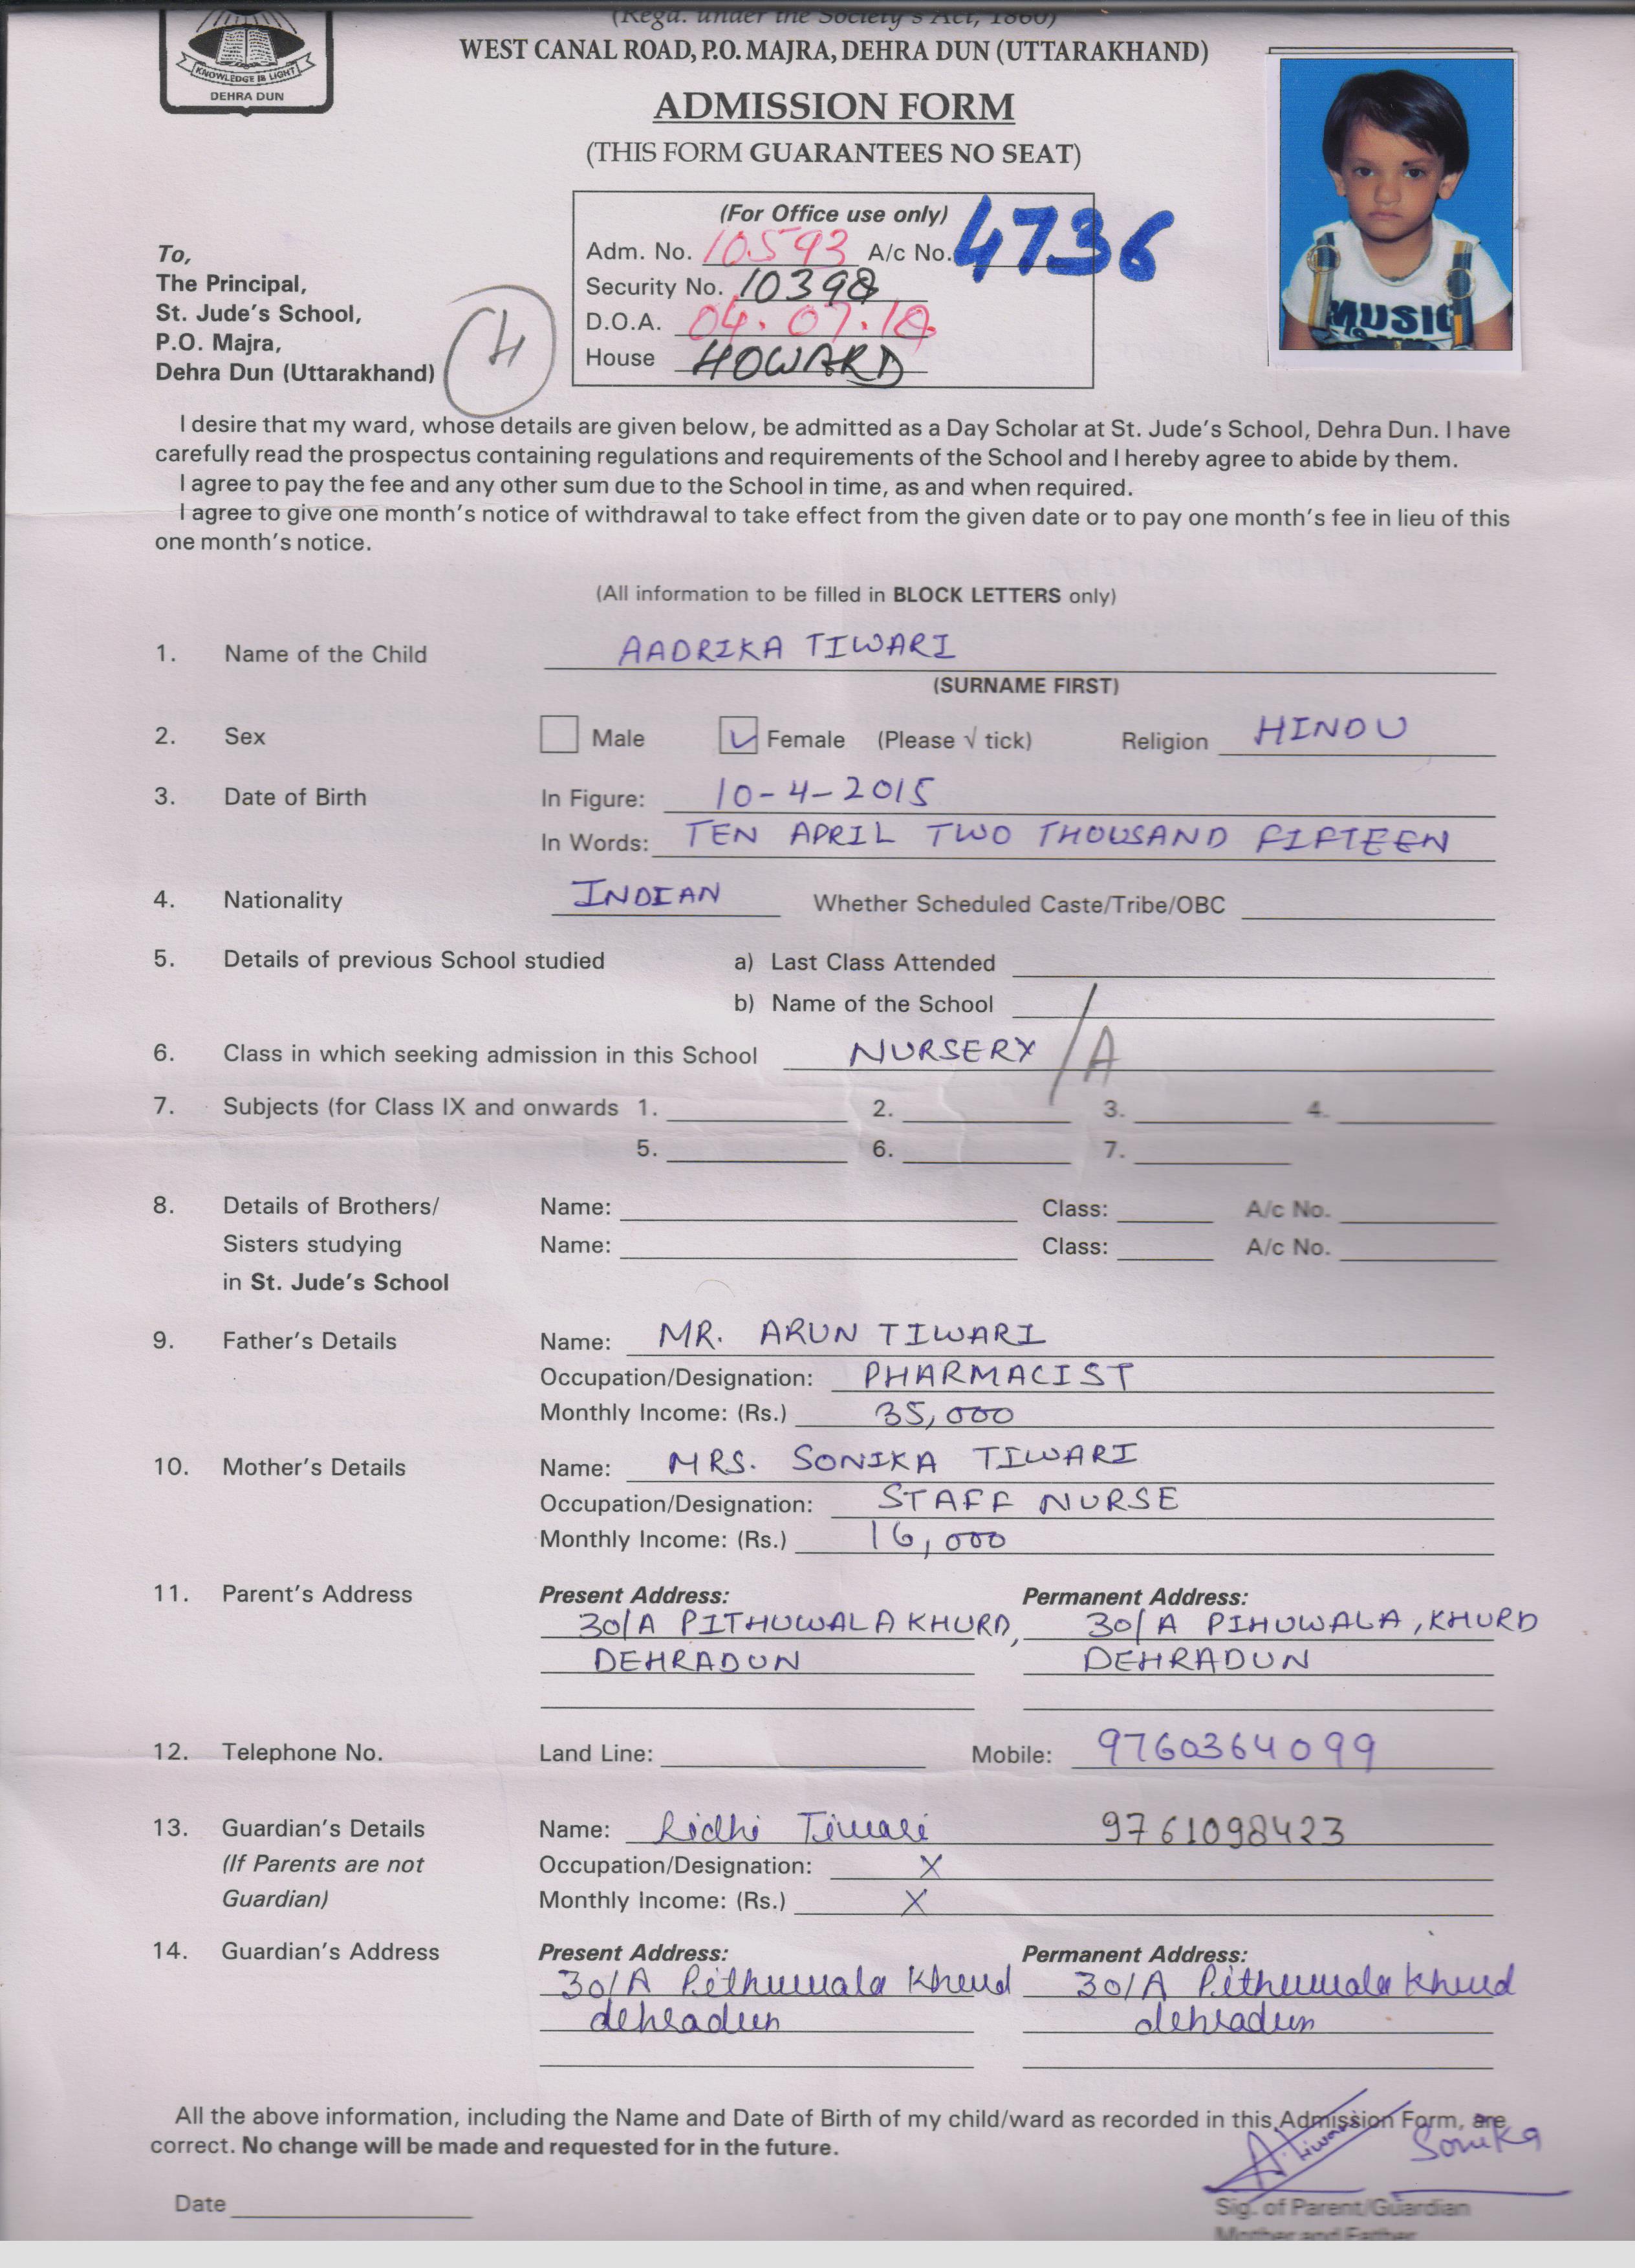 (Regd. under the Society's Act, 1860)
WEST CANAL ROAD, P.O. MAJRA, DEHRA DUN (UTTARAKHAND)
KNOWLEDGE IS LIGHT
DEHRA DUN
ADMISSION FORM
(THIS FORM GUARANTEES NO SEAT)
(For Office use only)
Adm. No. 10593 A/c No. 4736
Security No. 10398
D.O.A. 04.07.18
House HOWARD
To,
The Principal,
St. Jude's School,
P.O. Majra,
Dehra Dun (Uttarakhand)
4
MUSIC
I desire that my ward, whose details are given below, be admitted as a Day Scholar at St. Jude's School, Dehra Dun. I have
carefully read the prospectus containing regulations and requirements of the School and I hereby agree to abide by them.
I agree to pay the fee and any other sum due to the School in time, as and when required.
I agree to give one month's notice of withdrawal to take effect from the given date or to pay one month's fee in lieu of this
one month's notice.
(All information to be filled in BLOCK LETTERS only)
1. Name of the Child AADRIKA TIWARI
(SURNAME FIRST)
2. Sex Male Female (Please √ tick) Religion HINDU
3. Date of Birth In Figure: 10-4-2015
In Words: TEN APRIL TWO THOUSAND FIFTEEN
4. Nationality INDIAN Whether Scheduled Caste/Tribe/OBC
5. Details of previous School studied a) Last Class Attended
b) Name of the School
6. Class in which seeking admission in this School NURSERY /A
7. Subjects (for Class IX and onwards 1. 2. 3. 4.
5. 6. 7.
8. Details of Brothers/ Name: Class: A/c No.
Sisters studying Name: Class: A/c No.
in St. Jude's School
9. Father's Details Name: MR. ARUN TIWARI
Occupation/Designation: PHARMACIST
Monthly Income: (Rs.) 35,000
10. Mother's Details Name: MRS. SONIKA TIWARI
Occupation/Designation: STAFF NURSE
Monthly Income: (Rs.) 16,000
11. Parent's Address Present Address: Permanent Address:
30/A PITHUWALA KHURD, 30/A PIHUWALA, KHURD
DEHRADUN DEHRADUN
12. Telephone No. Land Line: Mobile: 9760364099
13. Guardian's Details Name: Ridhi Tiwari 9761098423
(If Parents are not Occupation/Designation: X
Guardian) Monthly Income: (Rs.) X
14. Guardian's Address Present Address: Permanent Address:
30/A Pithuwala Khurd 30/A Pithuwala Khurd
dehradun dehradun
All the above information, including the Name and Date of Birth of my child/ward as recorded in this Admission Form, are
correct. No change will be made and requested for in the future.
A. Tiwari Sonika
Date Sig. of Parent/Guardian
Mother and Father